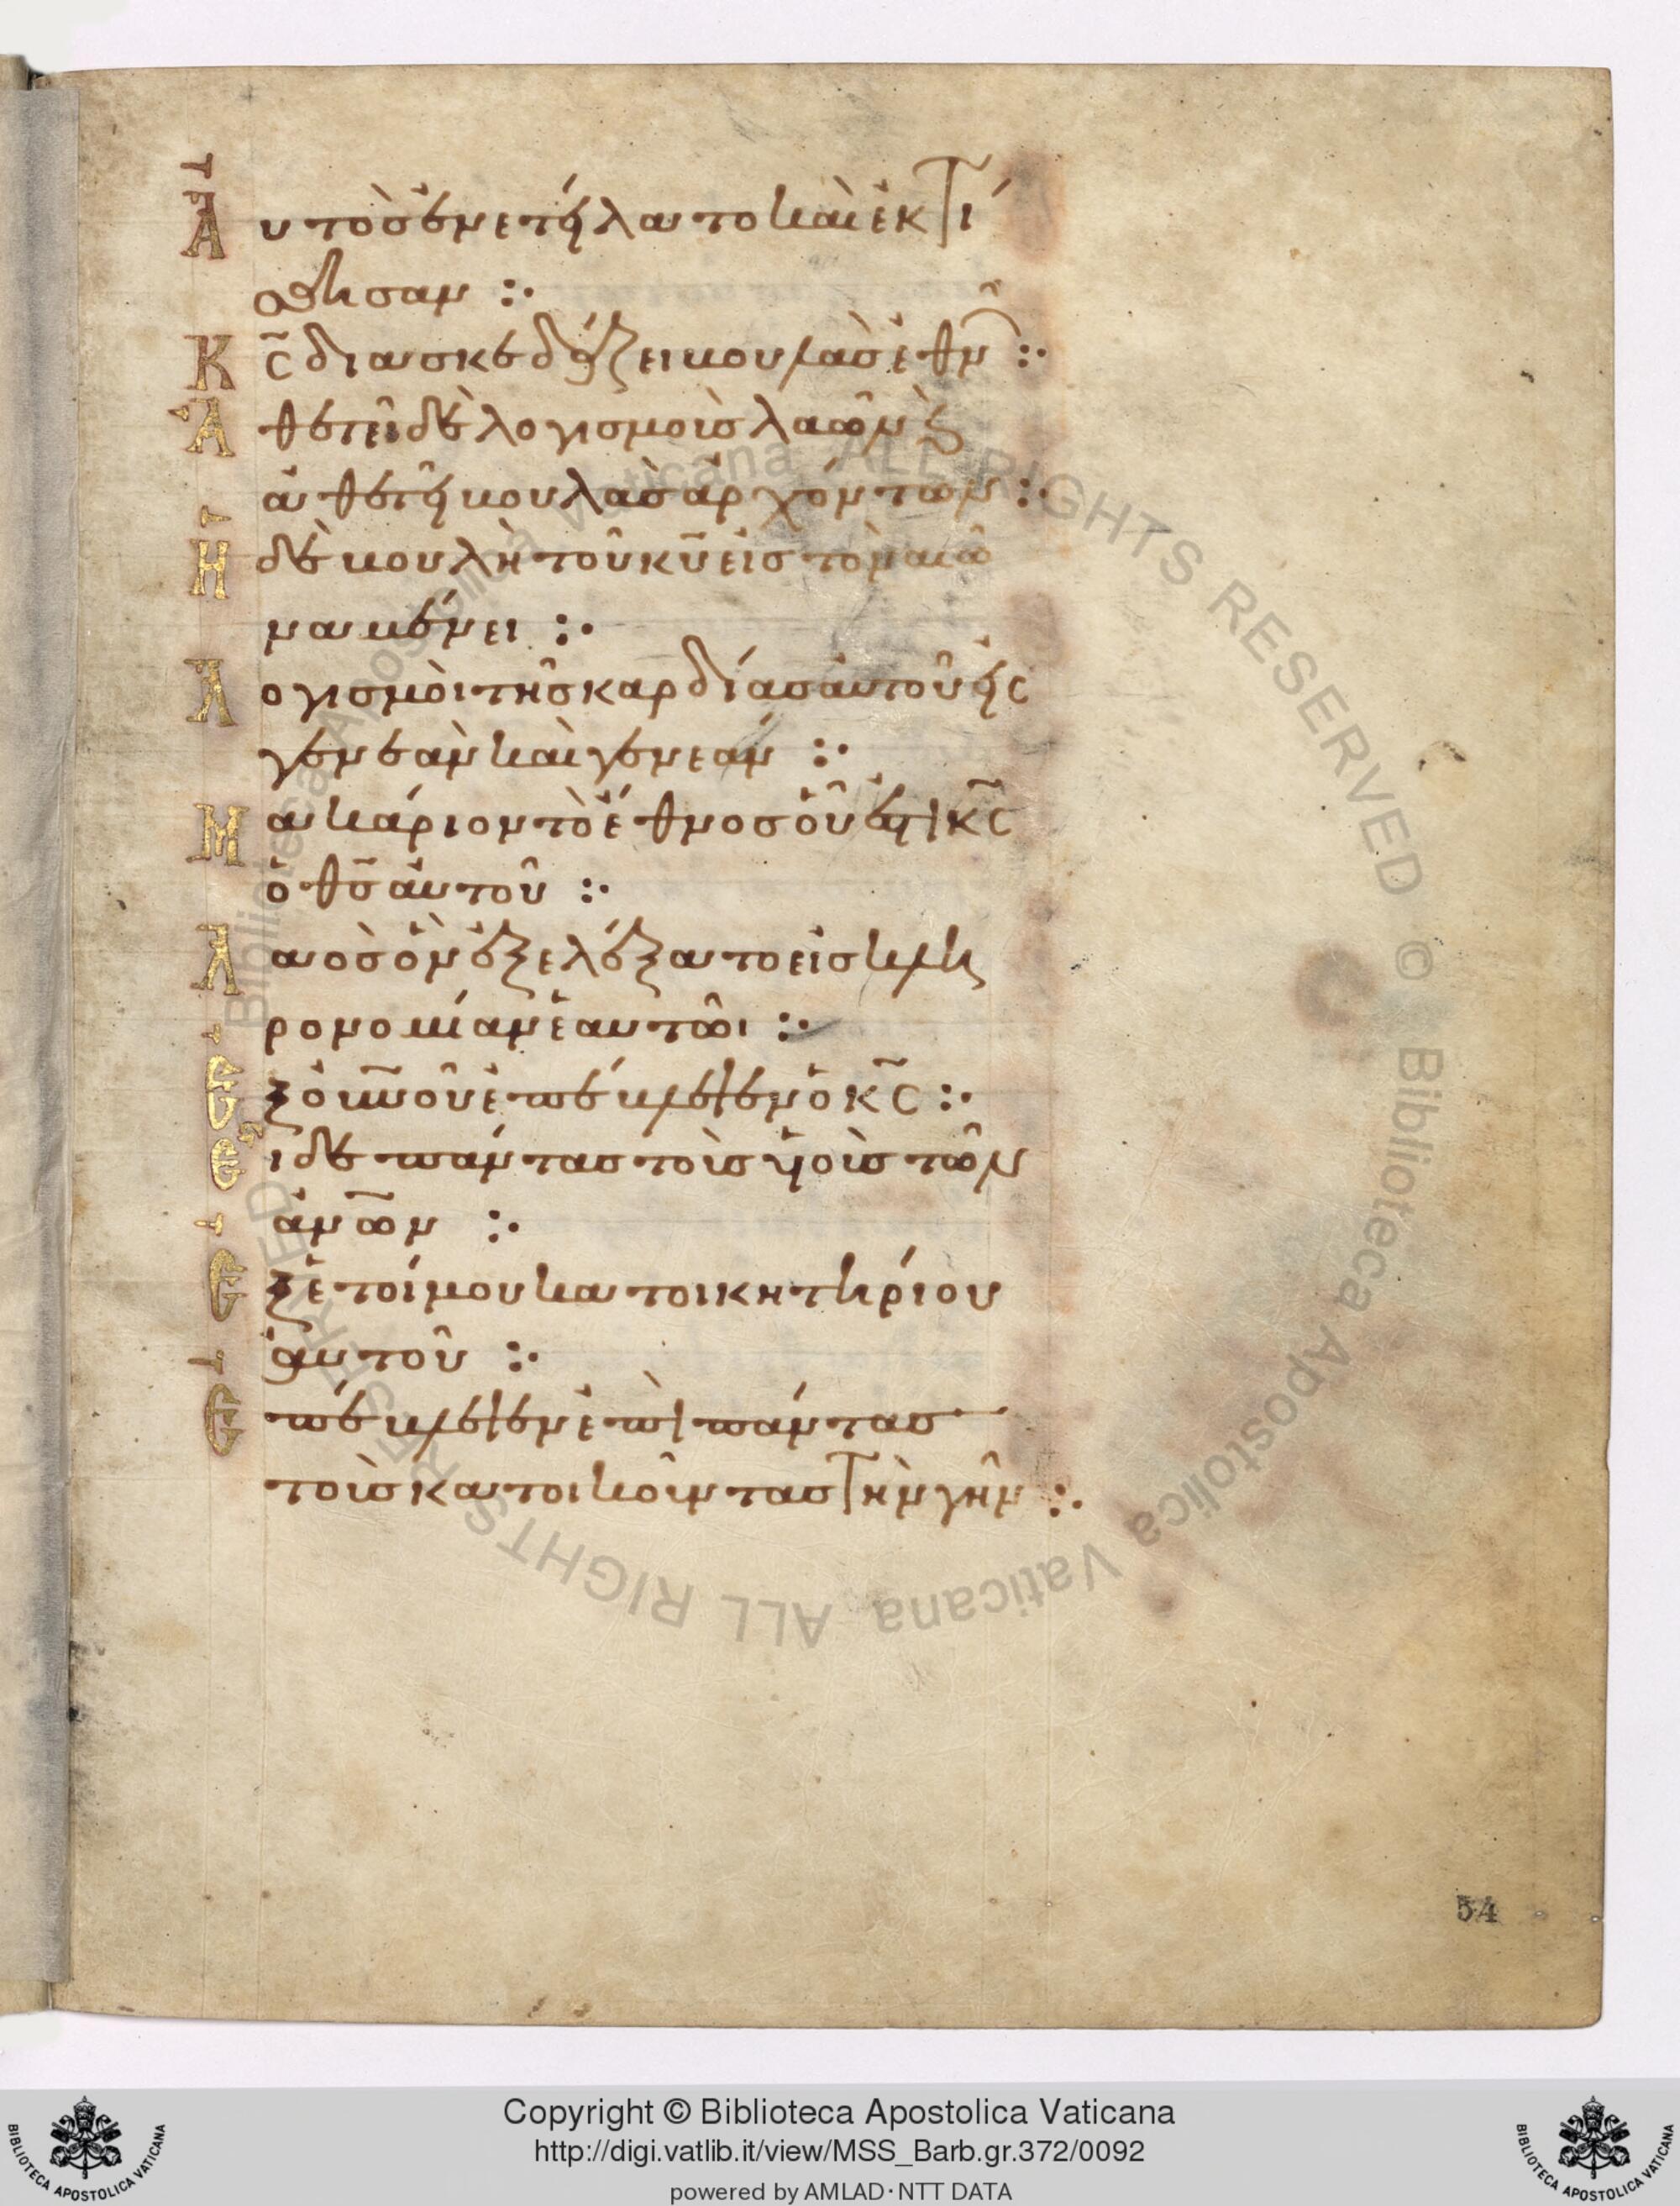 Αὐτὸς ἐνετείλατο καὶ ἐκτί
σθησαν :·
Κς̄ διασκεδάζει βουλὰς ἐθνῶν :·
Ἀθετεῖ δὲ λογισμοὺς λαῶν (καὶ)
ἀθετεῖ βουλὰς ἀρχόντων :·
Ἡ δὲ βουλὴ τοῦ κῡ εἰς τὸν αἰῶ
να μένει :·
Λογισμοὶ τῆς καρδίας αὐτοῦ εἰς
γενεὰν καὶ γενεάν :·
Μακάριον τὸ ἔθνος οὗ ἐστι κς̄
ὁ θς̄ αὐτοῦ :·
Λαὸς ὃν ἐξελέξατο εἰς κλη
ρονομίαν ἑαυτῶι :·
Ἐξ οὐν̄οῦ ἐπέβλεψεν ὁ κς̄ :·
Εἶδε πάντας τοὺς υἱοὺς τῶν
ἀν̄ων :·
Ἐξ ἑτοίμου κατοικητηρίου
αὐτοῦ :·
Ἐπέβλεψεν ἐπὶ πάντας
τοὺς κατοικοῦντας τὴν γῆν :·
54
Biblioteca Apostolica Vaticana ALL RIGHTS RESERVED © Biblioteca Apostolica Vaticana ALL RIGHTS RESERVED
Copyright © Biblioteca Apostolica Vaticana
http://digi.vatlib.it/view/MSS_Barb.gr.372/0092
powered by AMLAD·NTT DATA
BIBLIOTECA APOSTOLICA VATICANA
BIBLIOTECA APOSTOLICA VATICANA